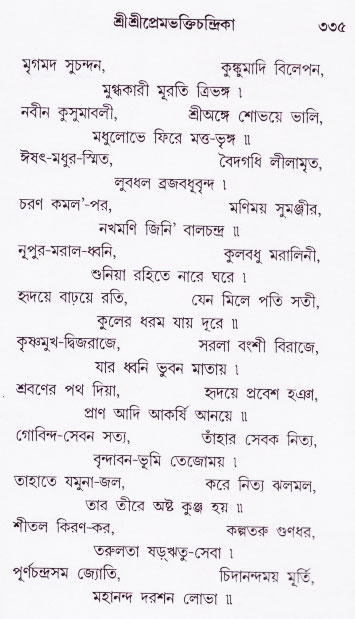 শ্রীশ্রীপ্রেমভক্তিচন্দ্রিকা ৩৩৫
মৃগমদ সুচন্দন, কুঙ্কুমাদি বিলেপন,
মুগ্ধকারী মূরতি ত্রিভঙ্গ ।
নবীন কুসুমাবলী, শ্রীঅঙ্গে শোভয়ে ভালি,
মধুলোভে ফিরে মত্ত-ভৃঙ্গ ॥
ঈষৎ-মধুর-স্মিত, বৈদগধি লীলামৃত,
লুবধল ব্রজবধূবৃন্দ ।
চরণ কমল'-পর, মণিময় সুমঞ্জীর,
নখমণি জিনি' বালচন্দ্র ॥
নূপুর-মরাল-ধ্বনি, কুলবধু মরালিনী,
শুনিয়া রহিতে নারে ঘরে ।
হৃদয়ে বাঢ়য়ে রতি, যেন মিলে পতি সতী,
কুলের ধরম যায় দূরে ॥
কৃষ্ণমুখ-দ্বিজরাজে, সরলা বংশী বিরাজে,
যার ধ্বনি ভুবন মাতায় ।
শ্রবণের পথ দিয়া, হৃদয়ে প্রবেশ হঞা,
প্রাণ আদি আকর্ষি আনয়ে ॥
গোবিন্দ-সেবন সত্য, তাঁহার সেবক নিত্য,
বৃন্দাবন-ভূমি তেজোময় ।
তাহাতে যমুনা-জল, করে নিত্য ঝলমল,
তার তীরে অষ্ট কুঞ্জ হয় ॥
শীতল কিরণ-কর, কল্পতরু গুণধর,
তরুলতা ষড়ঋতু-সেবা ।
পূর্ণচন্দ্রসম জ্যোতি, চিদানন্দময় মূর্তি,
মহানন্দ দরশন লোভা ॥